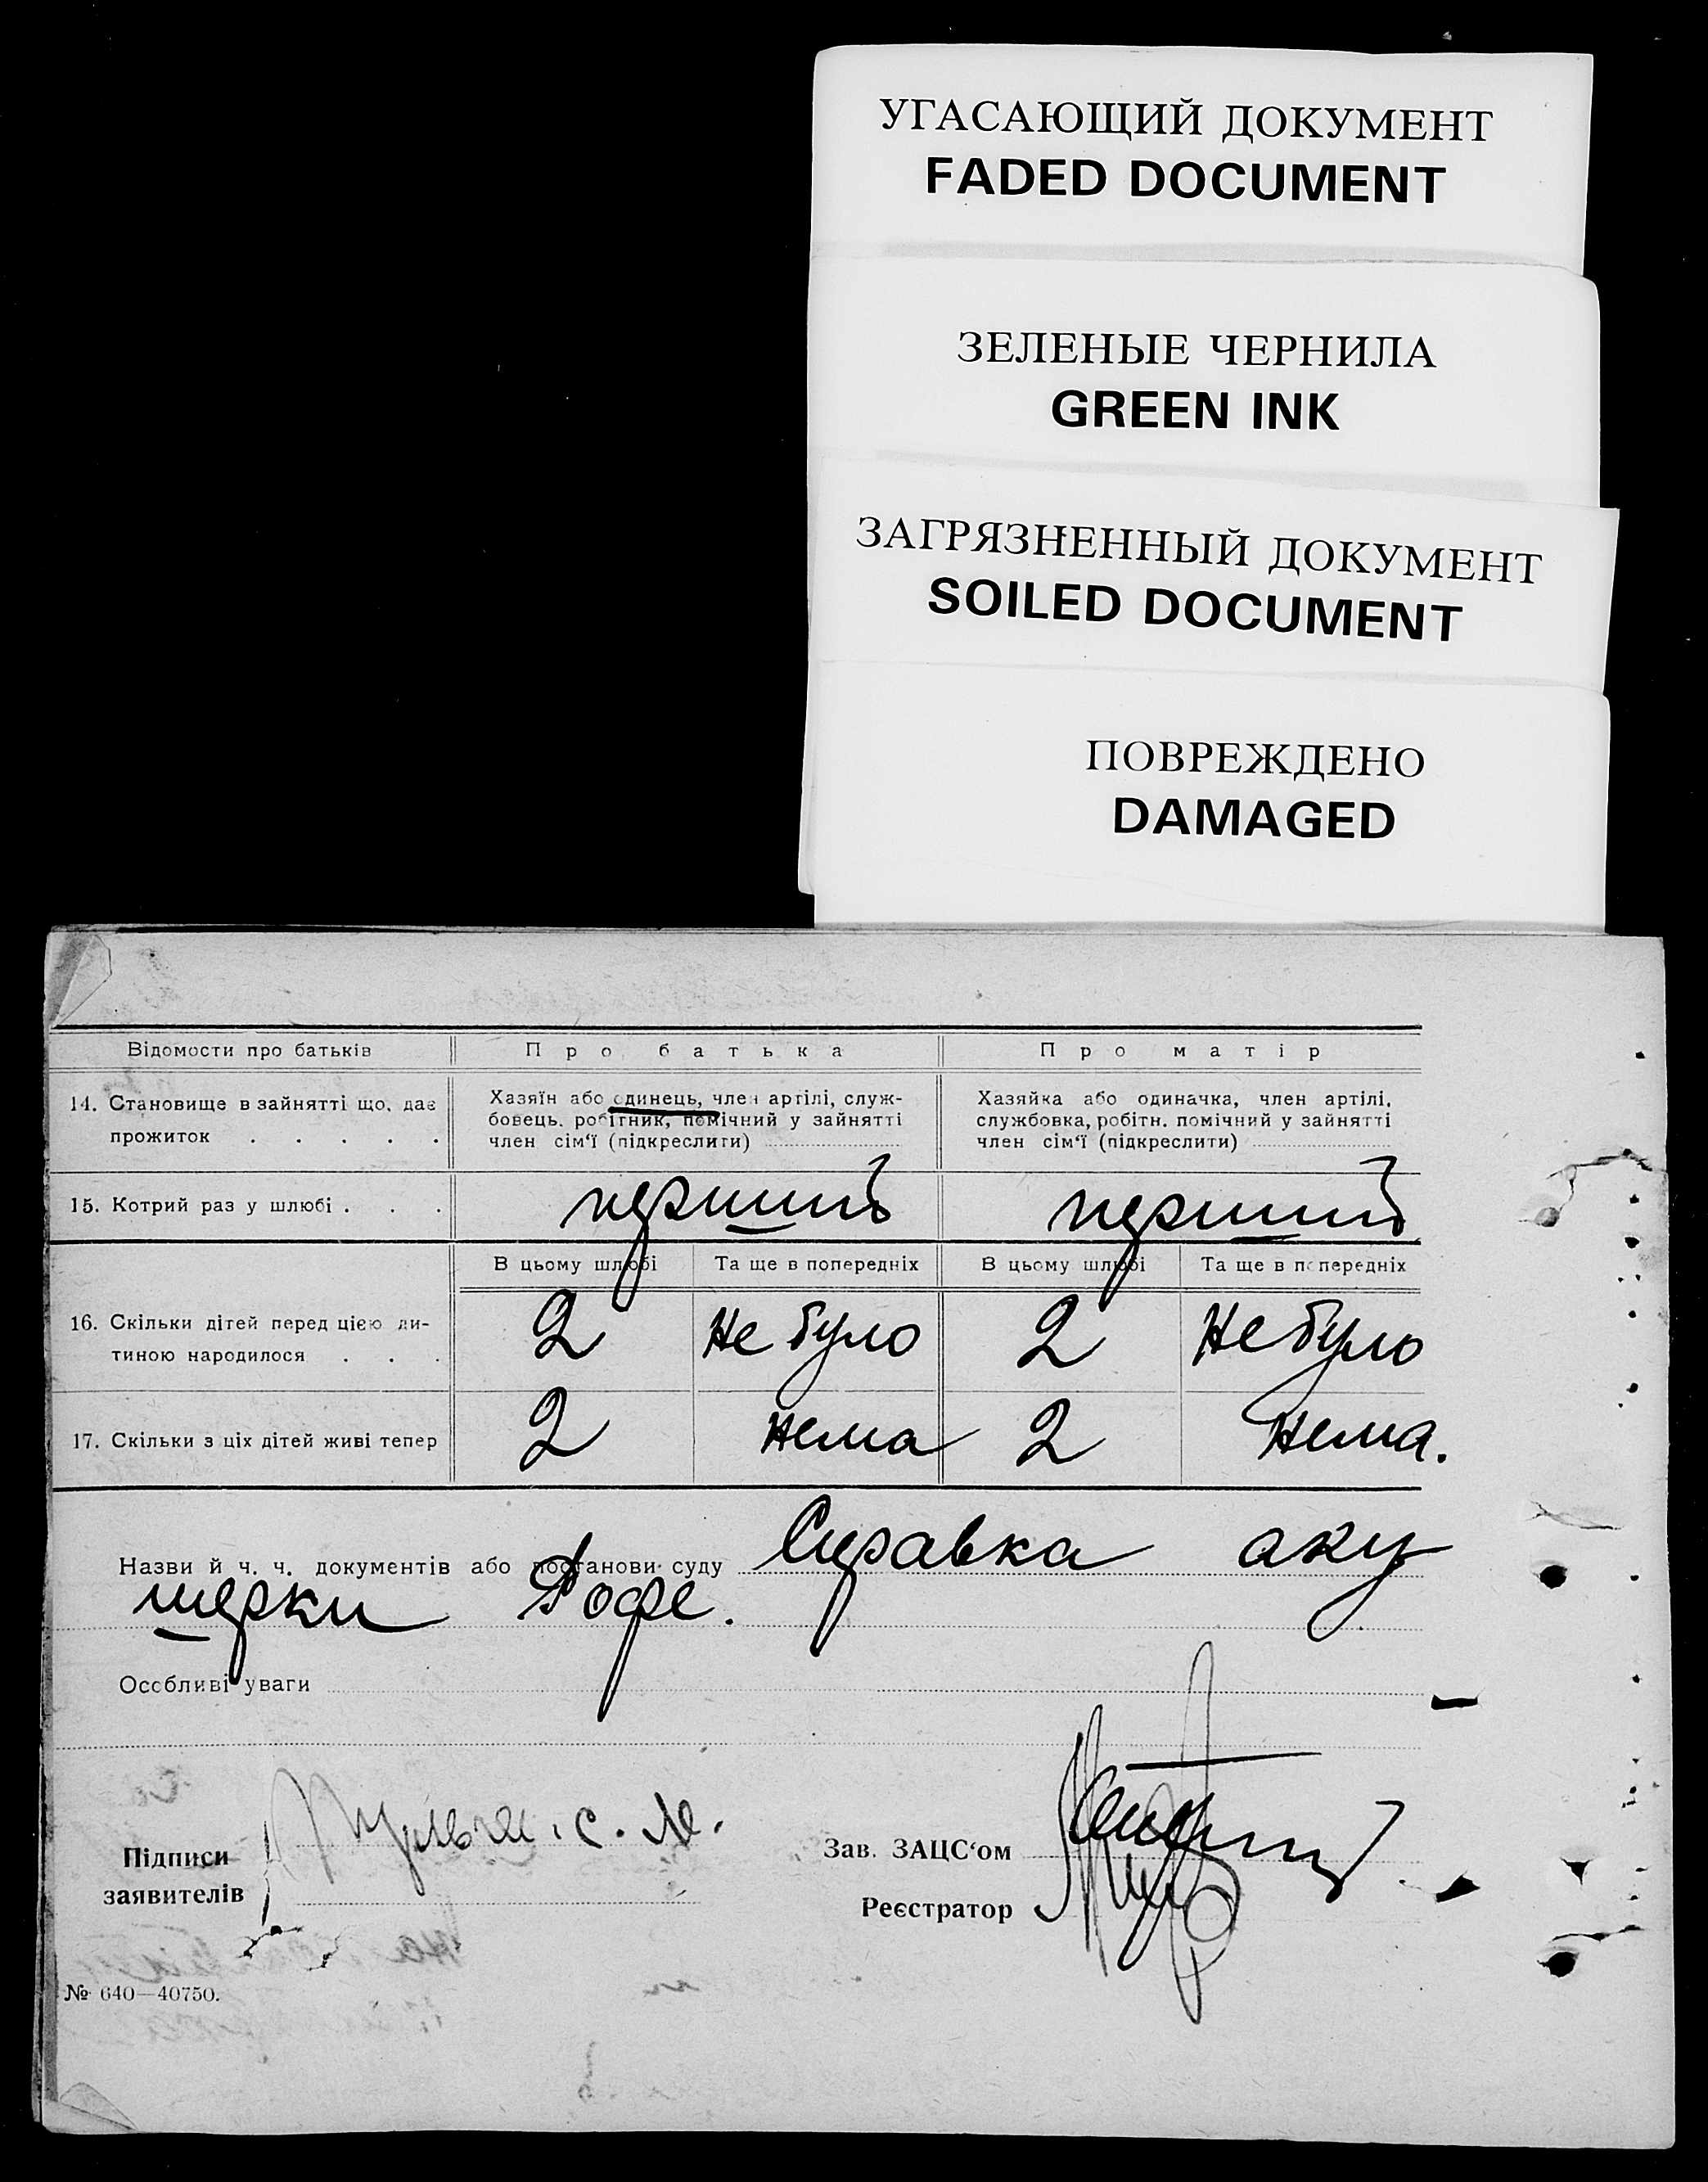 УГАСАЮЩИЙ ДОКУМЕНТ
FADED DOCUMENT
ЗЕЛЕНЫЕ ЧЕРНИЛА
GREEN INK
ЗАГРЯЗНЕННЫЙ ДОКУМЕНТ
SOILED DOCUMENT
ПОВРЕЖДЕНО
DAMAGED
Відомости про батьків
Про батька
Про матір
14. Становище в зайнятті що, дає
прожиток . . . . .
Хазяїн або одинець, член артілі, служ-
бовець, робітник, помічний у зайнятті
член сім'ї (підкреслити)
Хазяйка або одиначка, член артілі,
службовка, робітн. помічний у зайнятті
член сім'ї (підкреслити)
15. Котрий раз у шлюбі . . .
перший
перший
В цьому шлюбі
Та ще в попередніх
В цьому шлюбі
Та ще в попередніх
16. Скільки дітей перед цією ди-
тиною народилося . . .
2
не було
2
не було
17. Скільки з ціх дітей живі тепер
2
нема
2
нема.
Назви й ч. ч. документів або постанови суду Справка аку
шерки Рофе.
Особливі уваги
Підписи
заявителів
с. м.
Зав. ЗАЦС'ом
Реєстратор
№ 640—40750.